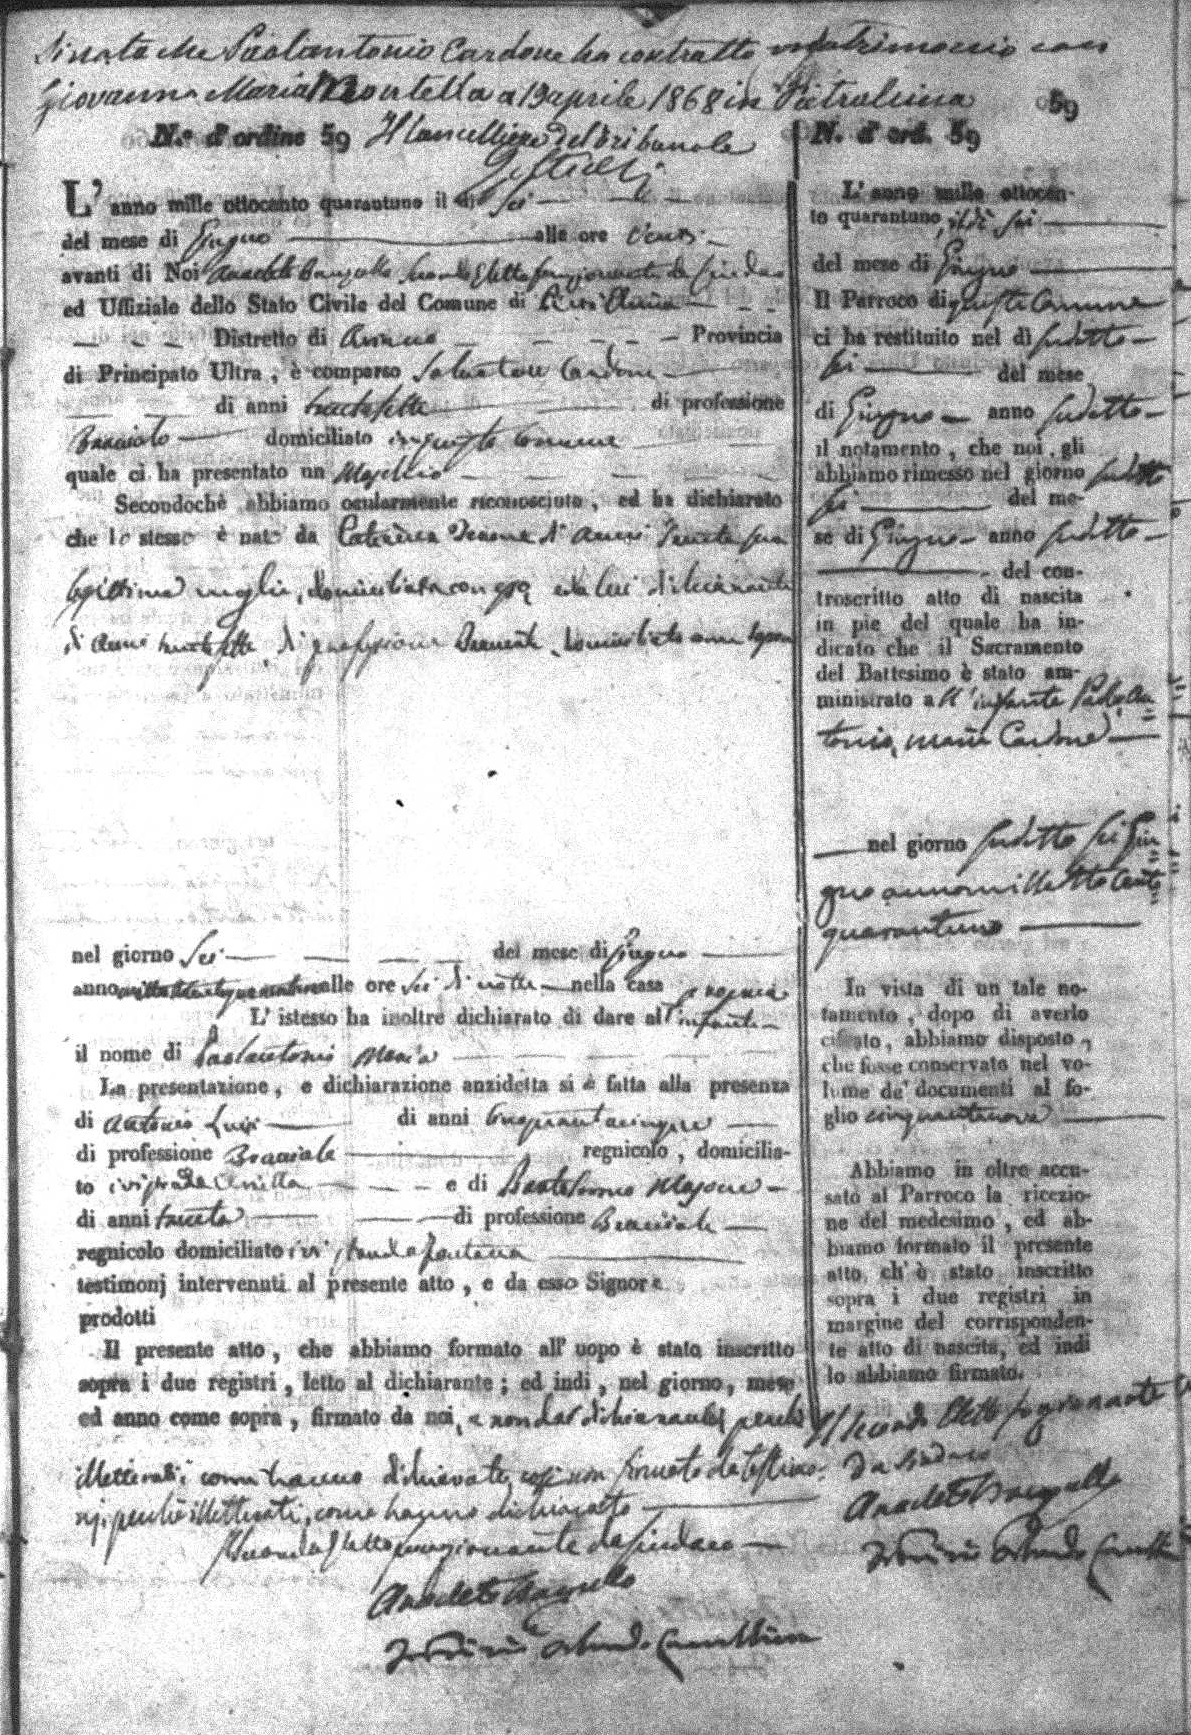 Si nota che Paolantonio Cardone ha contratto matrimonio con
Giovanna Maria Montella a 19 aprile 1868 in Pietrelcina
59
N.° d'ordine 59 Il Cancelliere del Tribunale
L'anno mille ottocento quarantuno il dì sei
del mese di Giugno alle ore
avanti di Noi Secondo Eletto funzionante da Sindaco
ed Uffiziale dello Stato Civile del Comune di
Distretto di Provincia
di Principato Ultra, è comparso Salvatore Cardone
di anni trentasette di professione
Bracciale domiciliato in questo Comune
quale ci ha presentato un Maschio
Secondochè abbiamo ocularmente riconosciuto, ed ha dichiarato
che lo stesso è nato da Caterina d'anni trenta sua
legittima moglie, domiciliata con esso e da lui dichiarante
di anni trentasette di professione Bracciale domiciliato come sopra
nel giorno Sei del mese di Giugno
anno alle ore sei di notte nella casa propria
L'istesso ha inoltre dichiarato di dare all'infante
il nome di Paolantonio Maria
La presentazione, e dichiarazione anzidetta si è fatta alla presenza
di Antonio di anni cinquantacinque
di professione Bracciale regnicolo, domicilia-
to in strada e di Bartolomeo
di anni trenta di professione Bracciale
regnicolo domiciliato in strada fontana
testimonj intervenuti al presente atto, e da esso Signore
prodotti
Il presente atto, che abbiamo formato all'uopo è stato inscritto
sopra i due registri, letto al dichiarante; ed indi, nel giorno, mese
ed anno come sopra, firmato da noi, e non dal dichiarante perchè
illetterati come hanno dichiarato, così non firmato da testimo-
nj, perchè illetterati, come hanno dichiarato
Il Secondo Eletto funzionante da Sindaco
Anacleto
N. d'ord. 59
L'anno mille ottocen-
to quarantuno, il dì sei
del mese di Giugno
Il Parroco di questo Comune
ci ha restituito nel dì sudetto
sei del mese
di Giugno anno sudetto
il notamento, che noi gli
abbiamo rimesso nel giorno sudetto
sei del me-
se di Giugno anno sudetto
del con-
troscritto atto di nascita
in pie del quale ha in-
dicato che il Sacramento
del Battesimo è stato am-
ministrato a ll'infante Paolo An
tonio Maria Cardone
nel giorno sudetto sei Giu
gno anno mille otto cento
quarantuno
In vista di un tale no-
tamento, dopo di averlo
cifrato, abbiamo disposto,
che fosse conservato nel vo-
lume de' documenti al fo-
glio cinquantanove
Abbiamo in oltre accu-
sato al Parroco la ricezio-
ne del medesimo, ed ab-
biamo formato il presente
atto, ch'è stato inscritto
sopra i due registri in
margine del corrisponden-
te atto di nascita, ed indi
lo abbiamo firmato.
Il Secondo Eletto funzionante
da Sindaco
Anacleto